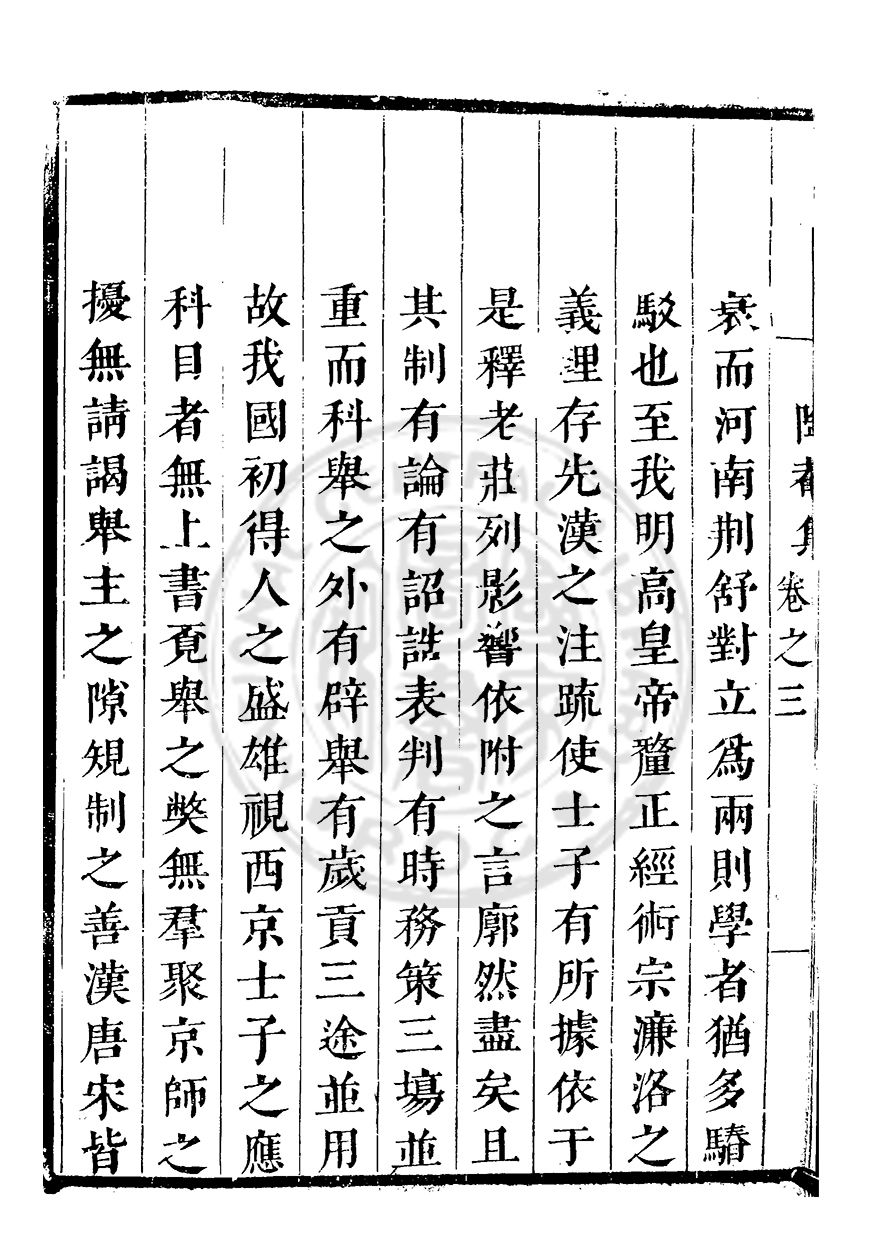 集卷之三
衰而河南荆舒對立爲兩則學者猶多騞
駁也至我明高皇帝釐正經術宗濂洛之
義理存先漢之注疏使士子有所據依于
是釋老莊列影響依附之言廓然盡矣且
其制有論有詔誥表判有時務策三塲並
重而科舉之外有辟舉有歲貢三途並用
故我國初得人之盛雄視西京士子之應
科目者無上書覔舉之獘無羣聚京師之
擾無請謁舉主之隙規制之善漢唐宋皆